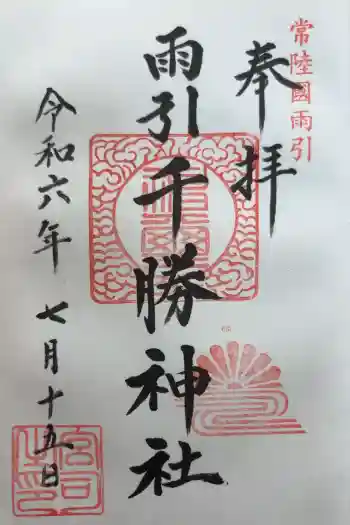 常陸國雨引
奉拝
雨引千勝神社
令和六年七月十五日
宮司之印